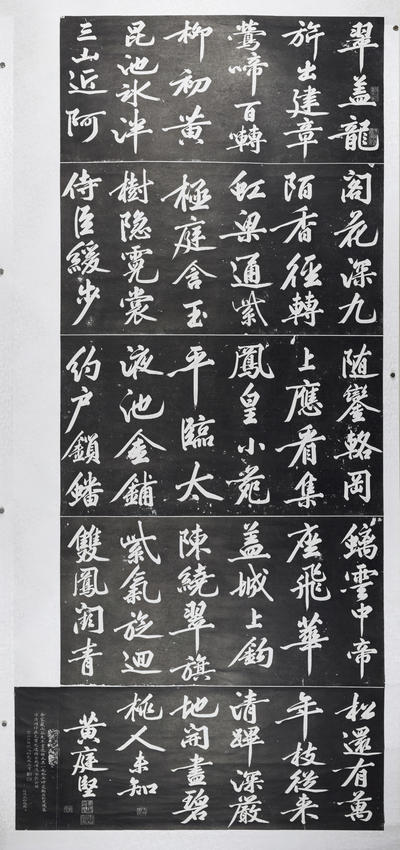 翠盖龍
旂出建章
鶯啼百囀
柳初黄
昆池冰泮
三山近阿
阁花深九
陌香徑轉
虹梁通紫
極庭含玉
樹隐霓裳
侍臣緩步
随鑾輅岡
上應看集
鳳皇小苑
平臨太
液池金鋪
约户鎖蟠
螭雲中帝
座飛華
盖城上鈎
陳繞翠旗
紫氣旋迴
雙鳳闕青
松還有萬
年枝從来
清蹕深嚴
地開盡碧
桃人未知
黄庭堅